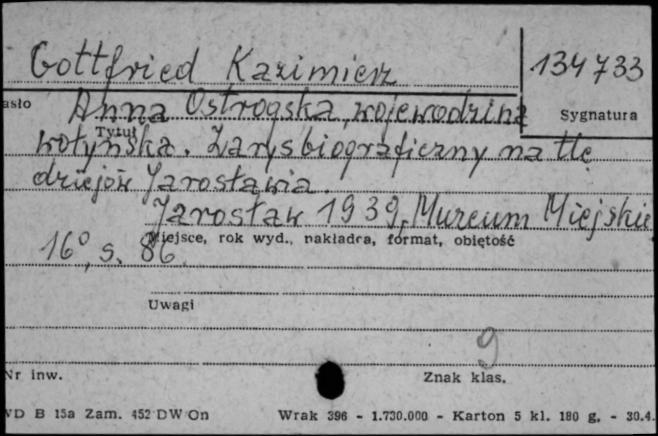 Gottfried Kazimierz
134733
asło
Anna Ostrogska, wojewodzina
Sygnatura
Tytuł
wołyńska. Zarys biograficzny na tle
dziejów Jarosławia.
Jarosław 1939, Muzeum Miejskie
Miejsce, rok wyd., nakładca, format, objętość
16°, s. 86
Uwagi
9
Nr inw.
Znak klas.
WD B 15a Zam. 452 DW On Wrak 396 - 1.730.000 - Karton 5 kl. 180 g. - 30.4.